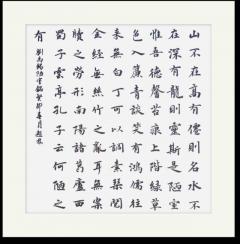 山不在高有僊則名水不
在深有龍則靈斯是陋室
惟吾德馨苔痕上階綠草
色入簾青談笑有鴻儒往
來無白丁可以調素琴閱
金經無絲竹之亂耳無案
牘之勞形南陽諸葛廬西
蜀子雲亭孔子云何陋之
有 劉禹錫陋室銘 癸卯春月